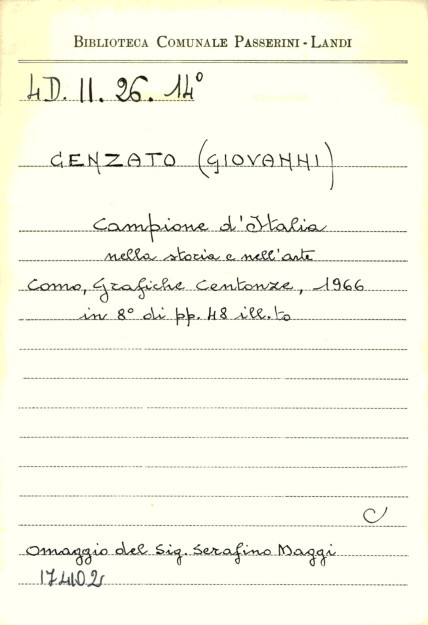 BIBLIOTECA COMUNALE PASSERINI - LANDI
4D. II. 26. 14°
GENZATO (GIOVANNI)
Campione d'Italia
nella storia e nell'arte
Como, Grafiche Centonze, 1966
in 8° di pp. 48 ill.to
C
Omaggio del Sig. Serafino Maggi
174102